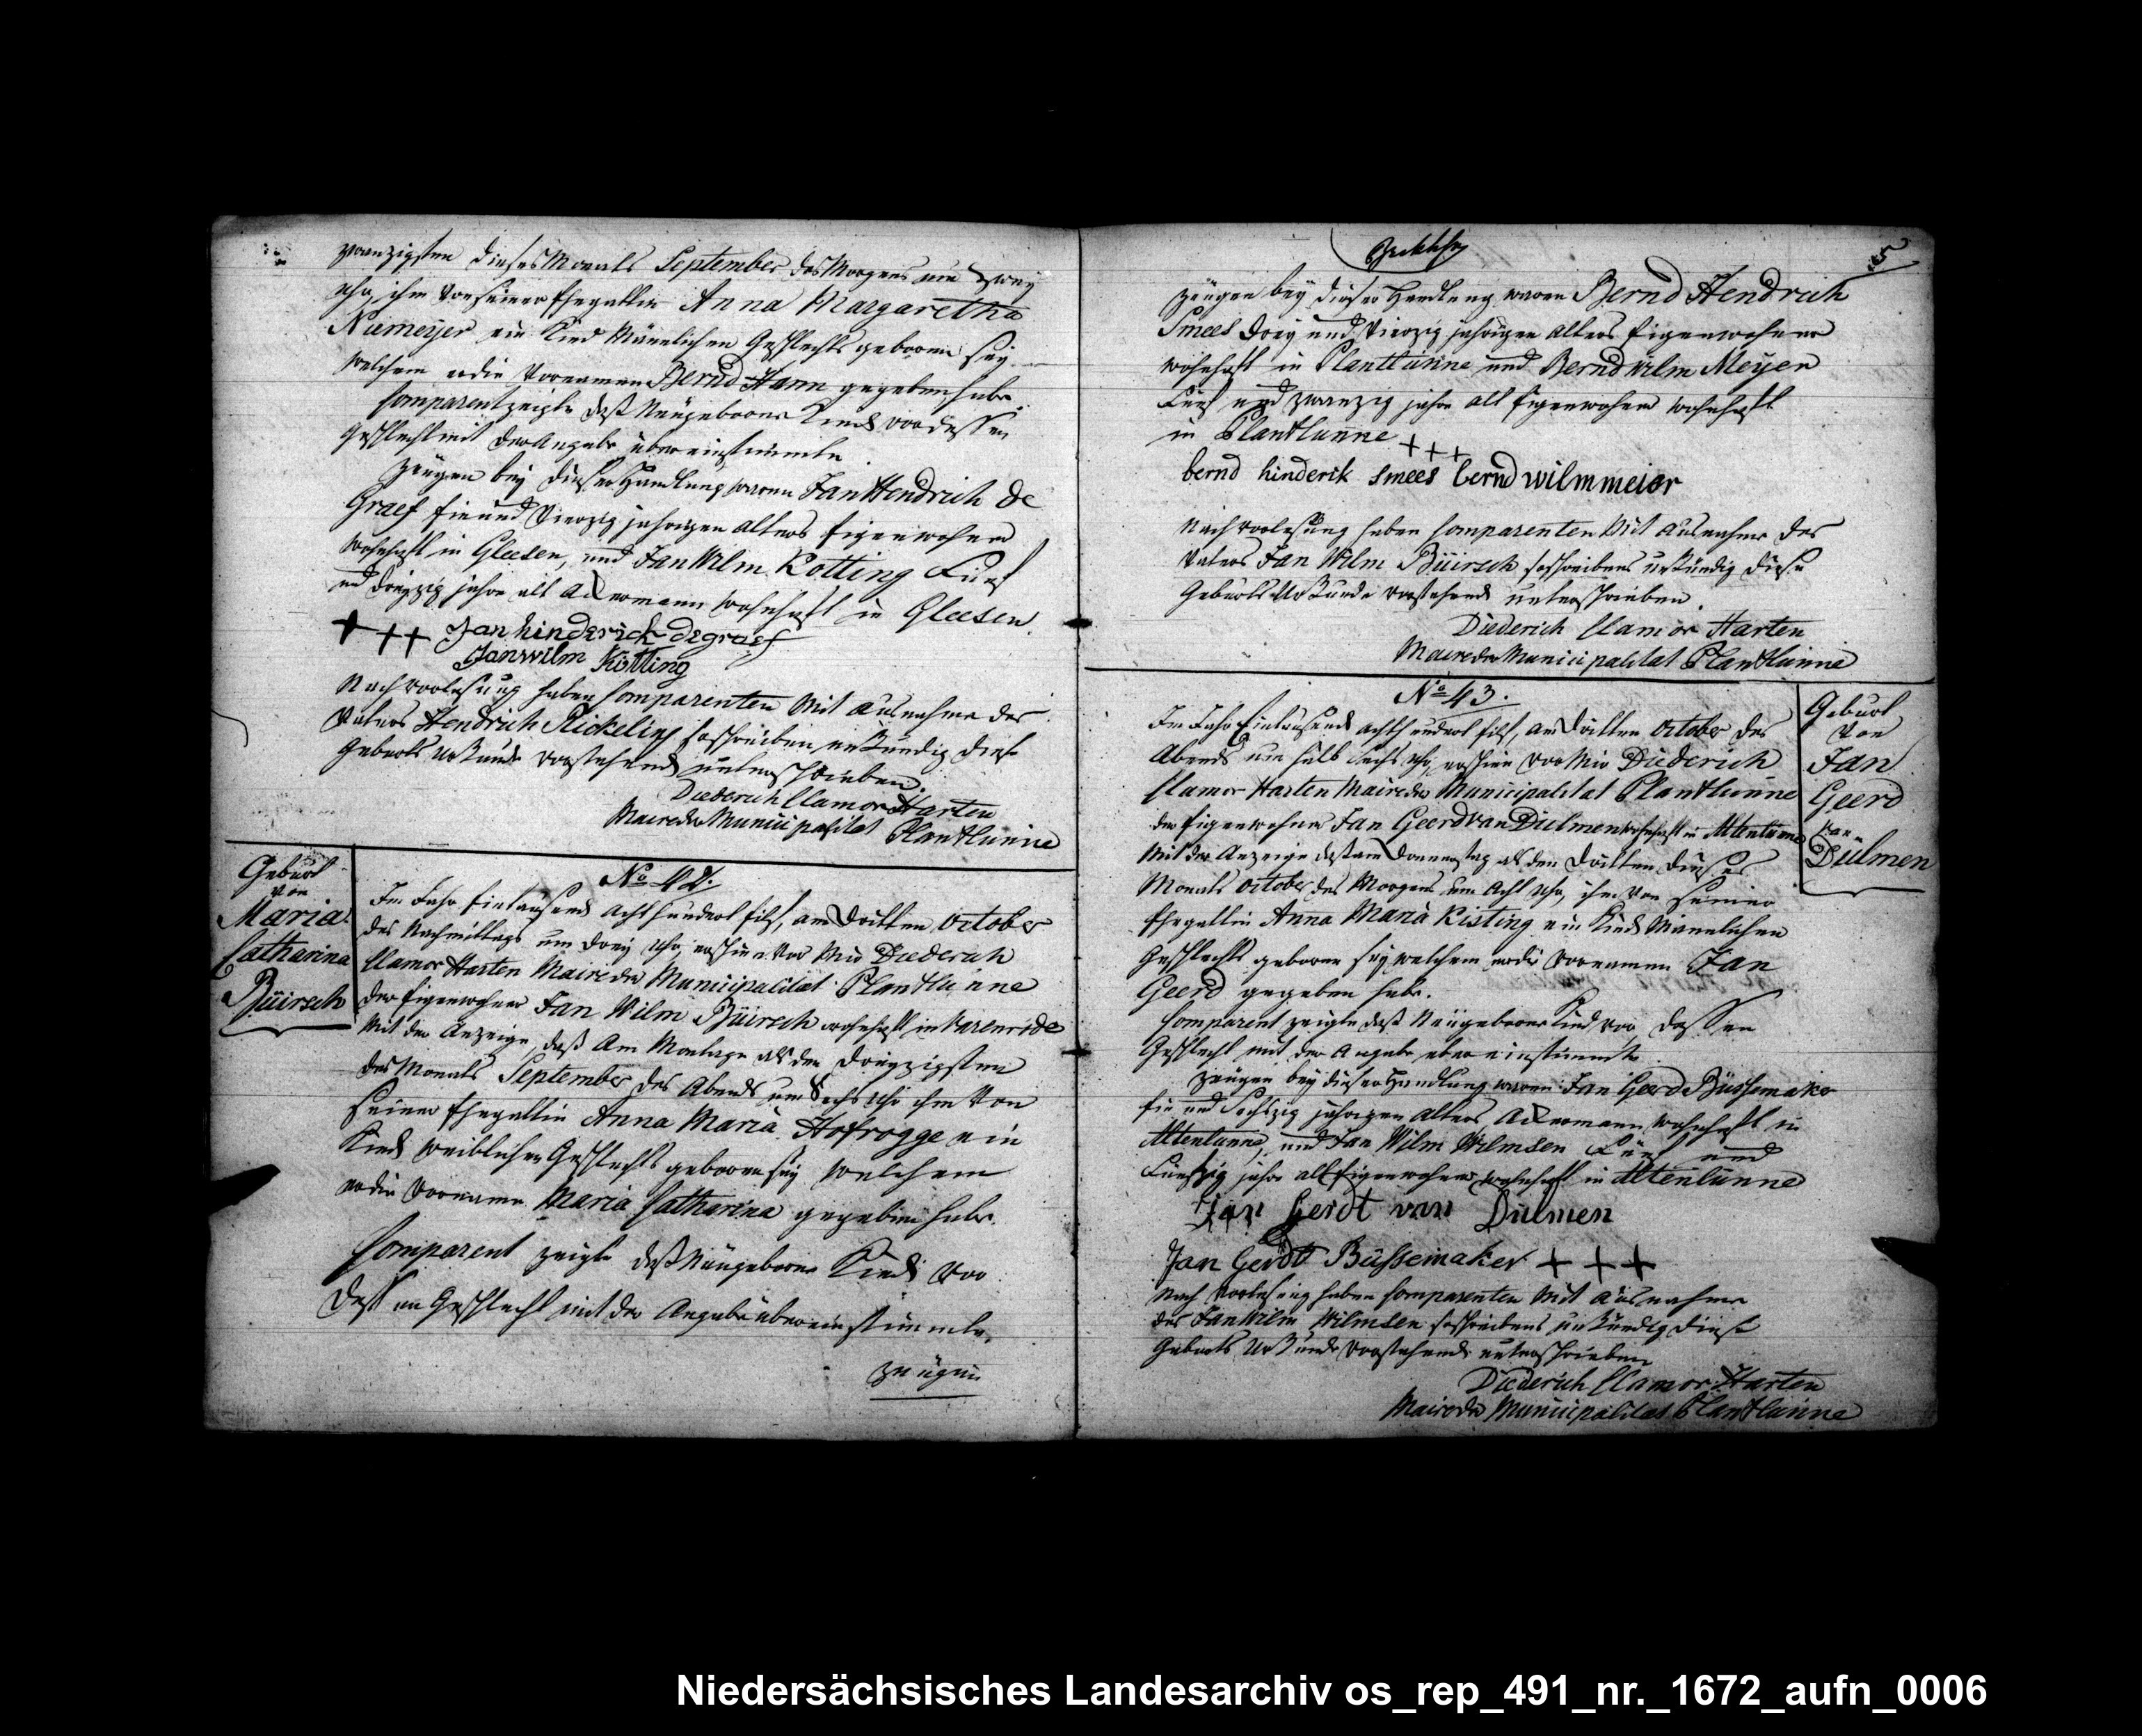 zwanzigsten dieses Monats September des Morgens um zwey
Uhr, ihm von seiner Ehegattin Anna Margaretha
Niemeyer ein Kind Männlichen Geschlechts gebohren sey
welchem er die Vornamen Bernd Hann gegeben habe.
Comparent zeigte das Neugeborne Kind vor dessen
Geschlecht mit der Angabe übereinstimmte.
Zeugen bey dieser Handlung waren Jan Hendrich de
Graef Ein und Vierzig jahrigen Alters Eigenwohner
wohnhaft in Gleesen, und Jan Wilm Kotting Fünf
und dreyzig jahre alt Ackermann wohnhaft in Gleesen.
+ + + Jan hinderick degraef
Janwilm Kötting
Nach Vorlesung haben Comparenten Mit Ausnahme des
Vaters Hendrich Rickeling schreiben unkündig diese
Geburts Urkunde vorstehend unterschrieben.
Diederich Clamor Harten
Maire der Municipalitat Plantlünne
Geburt
von
Maria
Catharina
Büirsch
No 42.
Im Jahr Eintausend Achthundert Eilf, am Dritten October
des Nachmittags um drey Uhr, erschien vor Mir Diederich
Clamor Harten Maire der Municipalitat Plantlünne
der Eigenwohner Jan Wilm Büirsch wohnhaft in Varenrode
Mit der Anzeige, daß Am Montage als den dreyzigsten
des Monats September des Abends um Sechs Uhr ihm von
seiner Ehegattin Anna Maria Hofrogge ein
Kind weiblichen Geschlechts geboren sey welchem
er die Vorname Maria Catharina gegeben habe.
Comparent zeigte das Neugeborne Kind vor
dessen Geschlecht mit der Angabe übereinstimmte.
Zeugen
5
Zeugen bey dieser Handlung waren Bernd Hendrich
Smees Drey und Vierzig jahrigen Alters Eigenwohner
wohnhaft in Plantlünne und Bernd Wilm Meyer
Fünf und zwanzig jahre alt Eigenwohner wohnhaft
in Plantlünne + + +
bernd hinderik smees bernd wilm meier
Nach Vorlesung haben Comparenten Mit Ausnahme des
Vaters Jan Wilm Büirsch schreibens unkündig diese
Geburts Urkunde vorstehend unterschrieben.
Diederich Clamor Harten
Maire der Municipalitat Plantlünne
No 43.
Im Jahr Eintausend Achthundert Eilf, am Dritten October des
Abends um halb Sechs Uhr, erschien vor Mir Diederich
Clamor Harten Maire der Municipalitat Plantlünne
der Eigenwohner Jan Geerd van Dülmen wohnhaft in Altenlünne
Mit der Anzeige daß am Donnerstag als den Dritten dieses
Monats October des Morgens um Acht Uhr, ihm von seiner
Ehegattin Anna Maria Kisting ein Kind Männlichen
Geschlechts geboren sey welchem er die Vornamen Jan
Geerd gegeben habe.
Comparent zeigte das Neugeborne Kind vor, dessen
Geschlecht mit der Angabe übereinstimmte.
Zeugen bey dieser Handlung waren Jan Geerd Büssemaker
Ein und Sechszig jahrigen Alters Ackermann wohnhaft in
Altenlünne, und Jan Wilm Wilmsen Fünf und
Fünfzig jahre alt Eigenwohner wohnhaft in Altenlünne
Jan Gerdt van Dülmen
Jan Gerdt Büssemaker + + +
Nach Vorlesung haben Comparenten Mit Ausnahme
des Jan Wilm Wilmsen schreibens unkündig diese
Geburts Urkunde vorstehende unterschrieben
Diederich Clamor Harten
Maire der Municipalitat Plantlünne
Geburt
von
Jan
Geerd
van
Dülmen
Niedersächsisches Landesarchiv os_rep_491_nr._1672_aufn_0006